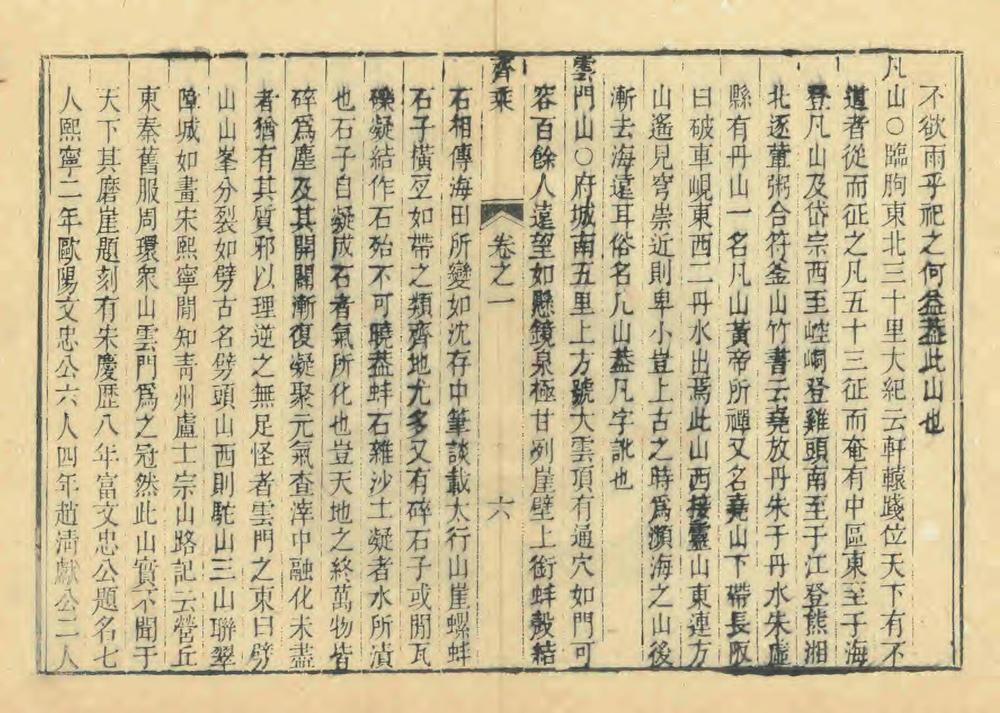 不欲雨乎祀之何益葢此山也
凡山○臨朐東北三十里大紀云軒轅踐位天下有不
道者從而征之凡五十三征而奄有中區東至于海
登凡山及岱宗西至崆峒登雞頭南至于江登熊湘
北逐葷粥合符釜山竹書云堯放丹朱于丹水朱虛
縣有丹山一名凡山黃帝所禪又名堯山下帶長阪
曰破車峴東西二丹水出焉此山西接靈山東連方
山遙見穹崇近則卑小豈上古之時爲瀕海之山後
漸去海遠耳俗名几山葢凡字訛也
雲門山○府城南五里上方號大雲頂有通穴如門可
容百餘人遠望如懸鏡泉極甘冽崖壁上銜蚌殼結
齊乘
卷之一
六
石相傳海田所變如沈存中筆談載太行山崖螺蚌
石子橫亙如帶之類齊地尤多又有碎石子或閒瓦
礫凝結作石殆不可曉葢蚌石雜沙土凝者水所漬
也石子自凝成石者氣所化也豈天地之終萬物皆
碎爲塵及其開闢漸復凝聚元氣查滓中融化未盡
者猶有其質邪以理逆之無足怪者雲門之東曰劈
山山峯分裂如劈古名劈頭山西則駝山三山聯翠
障城如畫宋熙寧閒知青州盧士宗山路記云營丘
東秦舊服周環衆山雲門爲之冠然此山實不聞于
天下其磨崖題刻有宋慶歷八年富文忠公題名七
人熙寧二年歐陽文忠公六人四年趙淸獻公二人